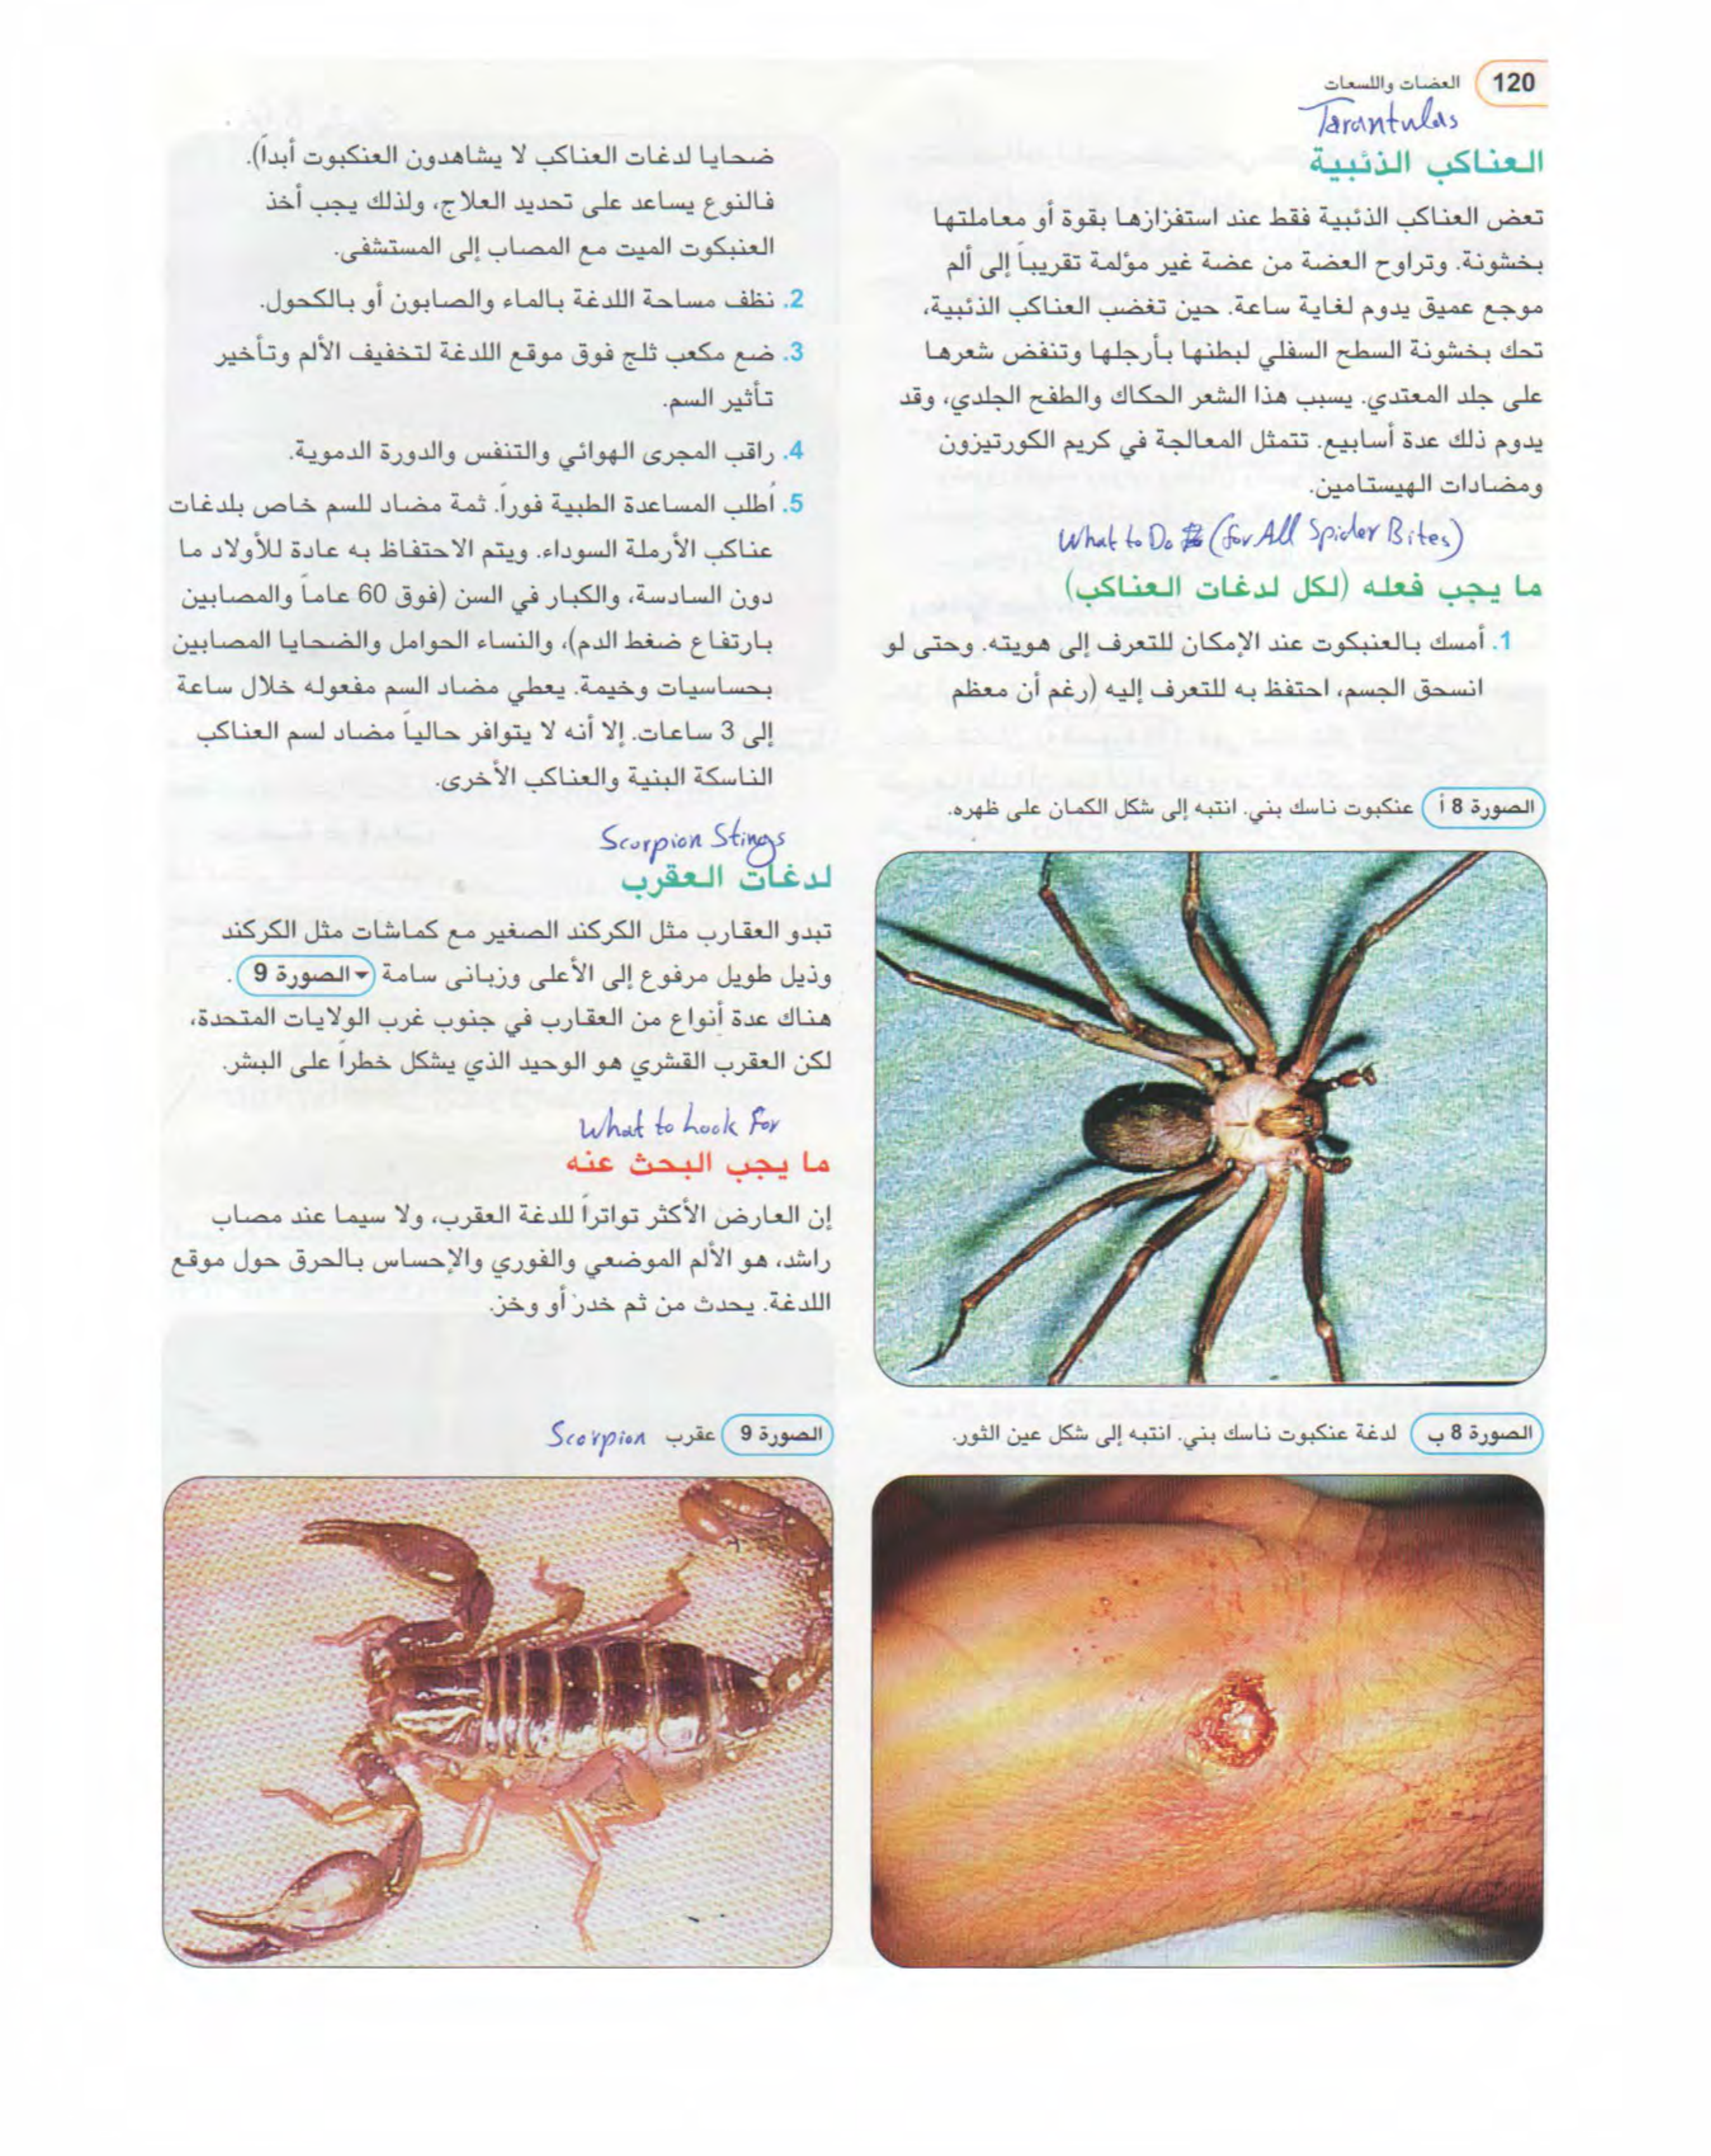 120 العضات واللسعات
Tarantulas
العناكب الذئبية
تعض العناكب الذئبية فقط عند استفزازها بقوة أو معاملتها
بخشونة. وتراوح العضة من عضة غير مؤلمة تقريباً إلى ألم
موجع عميق يدوم لغاية ساعة. حين تغضب العناكب الذئبية،
تحك بخشونة السطح السفلي لبطنها بأرجلها وتنفض شعرها
على جلد المعتدي. يسبب هذا الشعر الحكاك والطفح الجلدي، وقد
يدوم ذلك عدة أسابيع. تتمثل المعالجة في كريم الكورتيزون
ومضادات الهيستامين.
What to Do (for All Spider Bites)
ما يجب فعله (لكل لدغات العناكب)
1. أمسك بالعنبكوت عند الإمكان للتعرف إلى هويته. وحتى لو
انسحق الجسم، احتفظ به للتعرف إليه (رغم أن معظم
الصورة 8 أ عنكبوت ناسك بني. انتبه إلى شكل الكمان على ظهره.
الصورة 8 ب لدغة عنكبوت ناسك بني. انتبه إلى شكل عين الثور.
ضحايا لدغات العناكب لا يشاهدون العنكبوت أبداً).
فالنوع يساعد على تحديد العلاج، ولذلك يجب أخذ
العنبكوت الميت مع المصاب إلى المستشفى.
2. نظف مساحة اللدغة بالماء والصابون أو بالكحول.
3. ضع مكعب ثلج فوق موقع اللدغة لتخفيف الألم وتأخير
تأثير السم.
4. راقب المجرى الهوائي والتنفس والدورة الدموية.
5. أطلب المساعدة الطبية فوراً. ثمة مضاد للسم خاص بلدغات
عناكب الأرملة السوداء. ويتم الاحتفاظ به عادة للأولاد ما
دون السادسة، والكبار في السن (فوق 60 عاماً والمصابين
بارتفاع ضغط الدم)، والنساء الحوامل والضحايا المصابين
بحساسيات وخيمة. يعطي مضاد السم مفعوله خلال ساعة
إلى 3 ساعات. إلا أنه لا يتوافر حالياً مضاد لسم العناكب
الناسكة البنية والعناكب الأخرى.
Scorpion Stings
لدغات العقرب
تبدو العقارب مثل الكركند الصغير مع كماشات مثل الكركند
وذيل طويل مرفوع إلى الأعلى وزبانى سامة الصورة 9 .
هناك عدة أنواع من العقارب في جنوب غرب الولايات المتحدة،
لكن العقرب القشري هو الوحيد الذي يشكل خطراً على البشر.
What to Look For
ما يجب البحث عنه
إن العارض الأكثر تواتراً للدغة العقرب، ولا سيما عند مصاب
راشد، هو الألم الموضعي والفوري والإحساس بالحرق حول موقع
اللدغة. يحدث من ثم خدر أو وخز.
الصورة 9 عقرب Scorpion